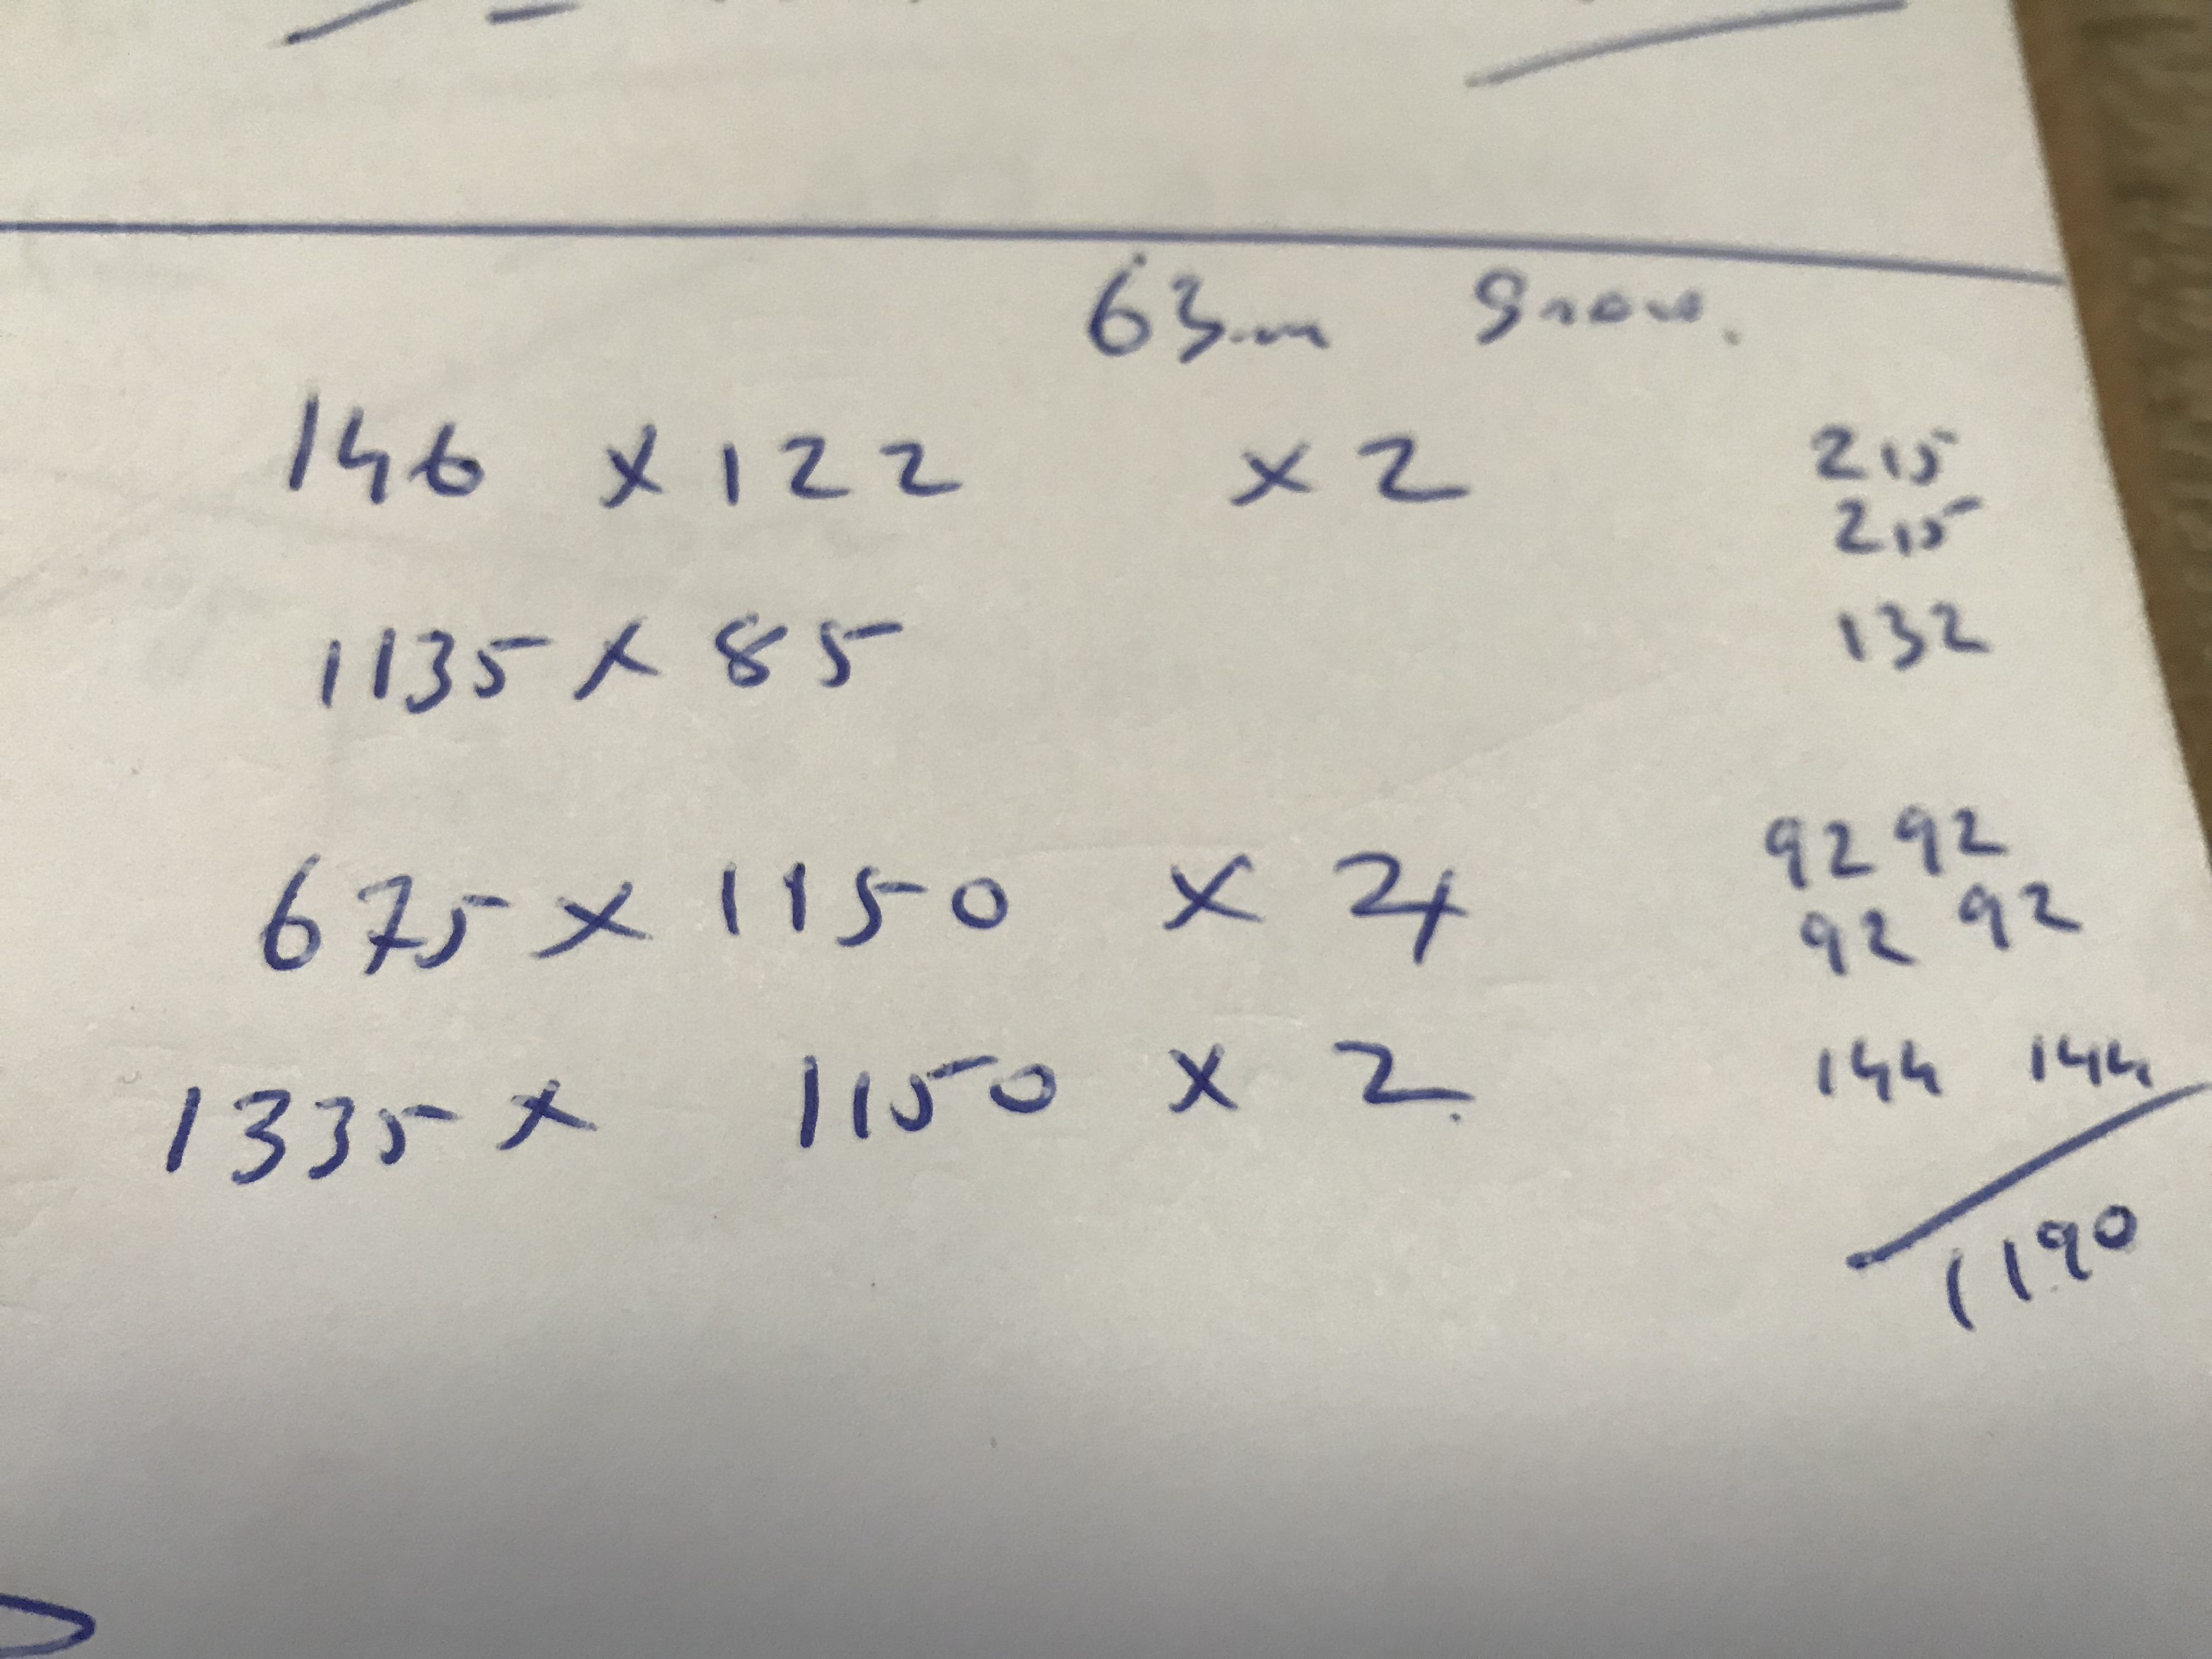 63mm
146 x 122 x 2 215
215
1135 x 85 132
675 x 1150 x 4 92 92
92 92
1335 x 1150 x 2 144 144
1190